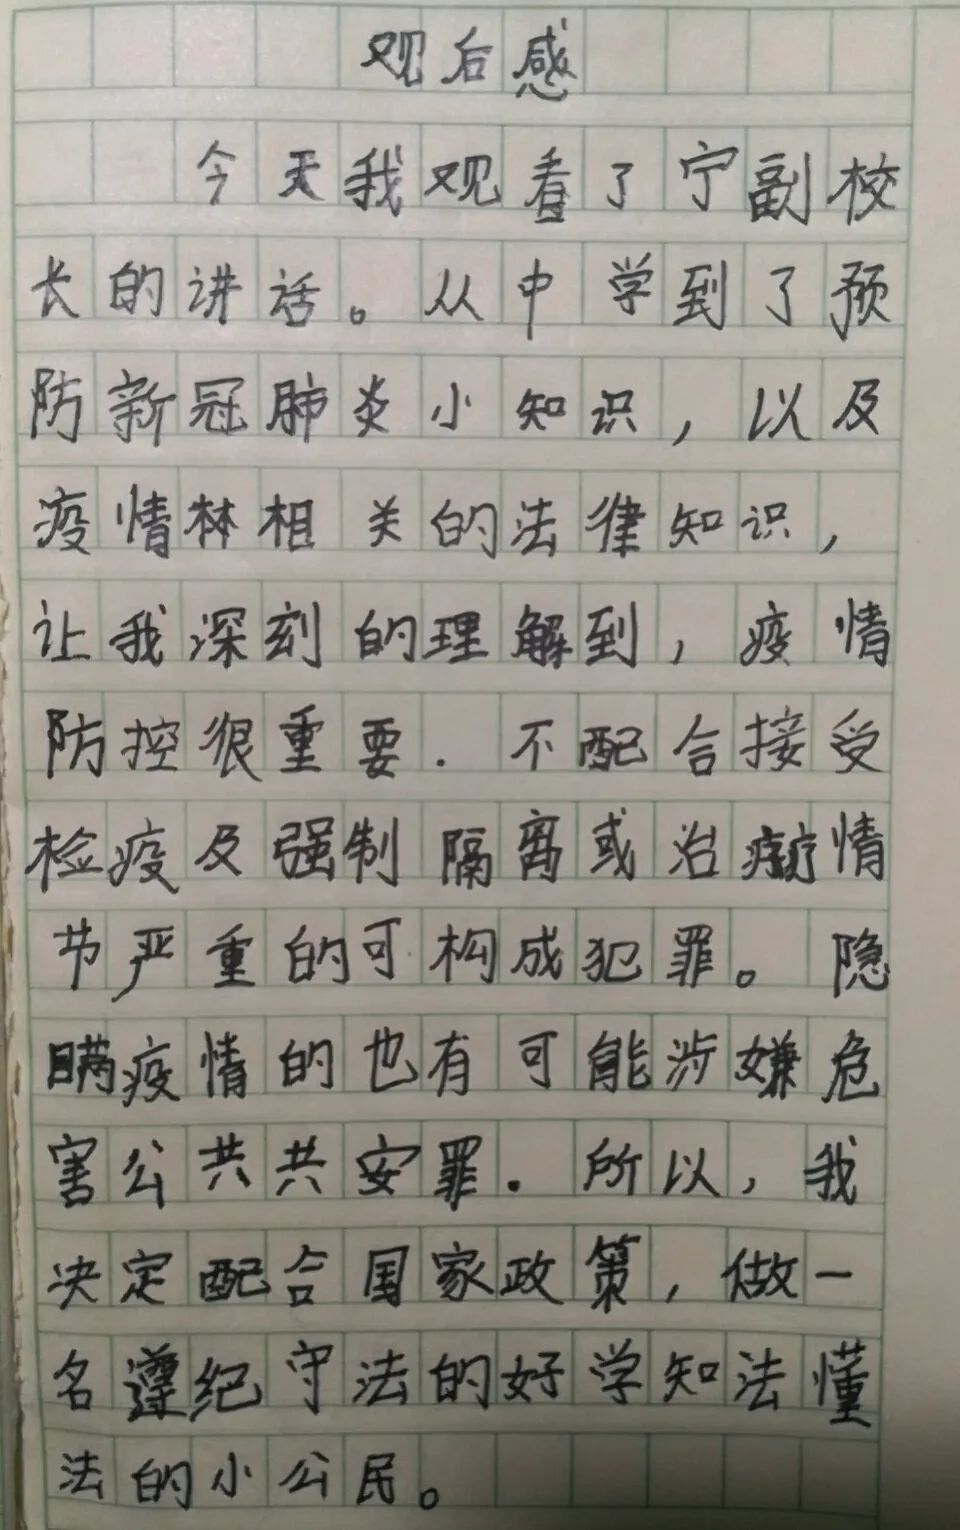 观后感
今天我观看了宁副校
长的讲话。从中学到了预
防新冠肺炎小知识，以及
疫情林相关的法律知识，
让我深刻的理解到，疫情
防控很重要．不配合接受
检疫及强制隔离或治疗情
节严重的可构成犯罪。隐
瞒疫情的也有可能涉嫌危
害公共共安罪．所以，我
决定配合国家政策，做一
名遵纪守法的好学知法懂
法的小公民。